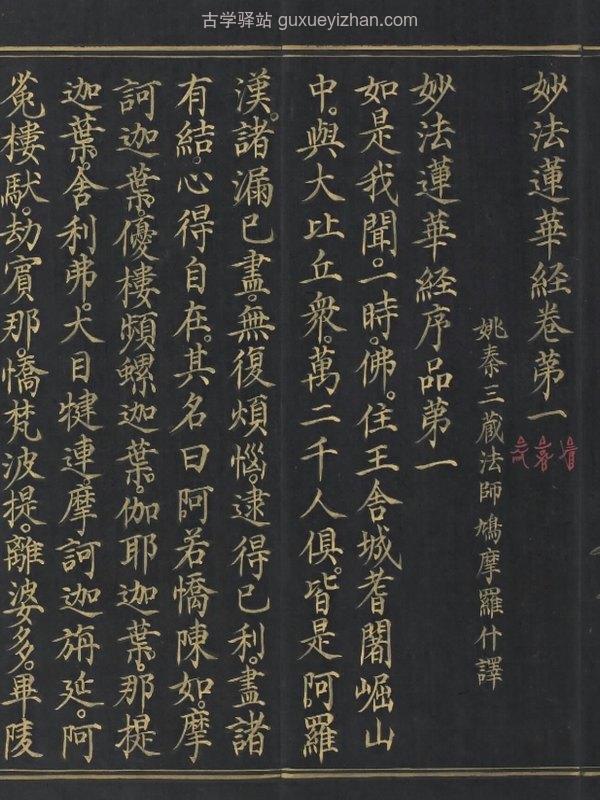 古学驿站 guxueyizhan.com
妙法蓮華経卷第一
姚秦三蔵法師鳩摩羅什譯
妙法蓮華経序品第一
如是我聞。一時。佛。住王舎城耆闍崛山
中。與大比丘衆。萬二千人俱。皆是阿羅
漢。諸漏已盡。無復煩惱。逮得已利。盡諸
有結。心得自在。其名曰阿若憍陳如。摩
訶迦葉。優樓頻螺迦葉。伽耶迦葉。那提
迦葉。舎利弗。大目犍連。摩訶迦旃延。阿
㝹樓馱。劫賓那。憍梵波提。離婆多。畢陵